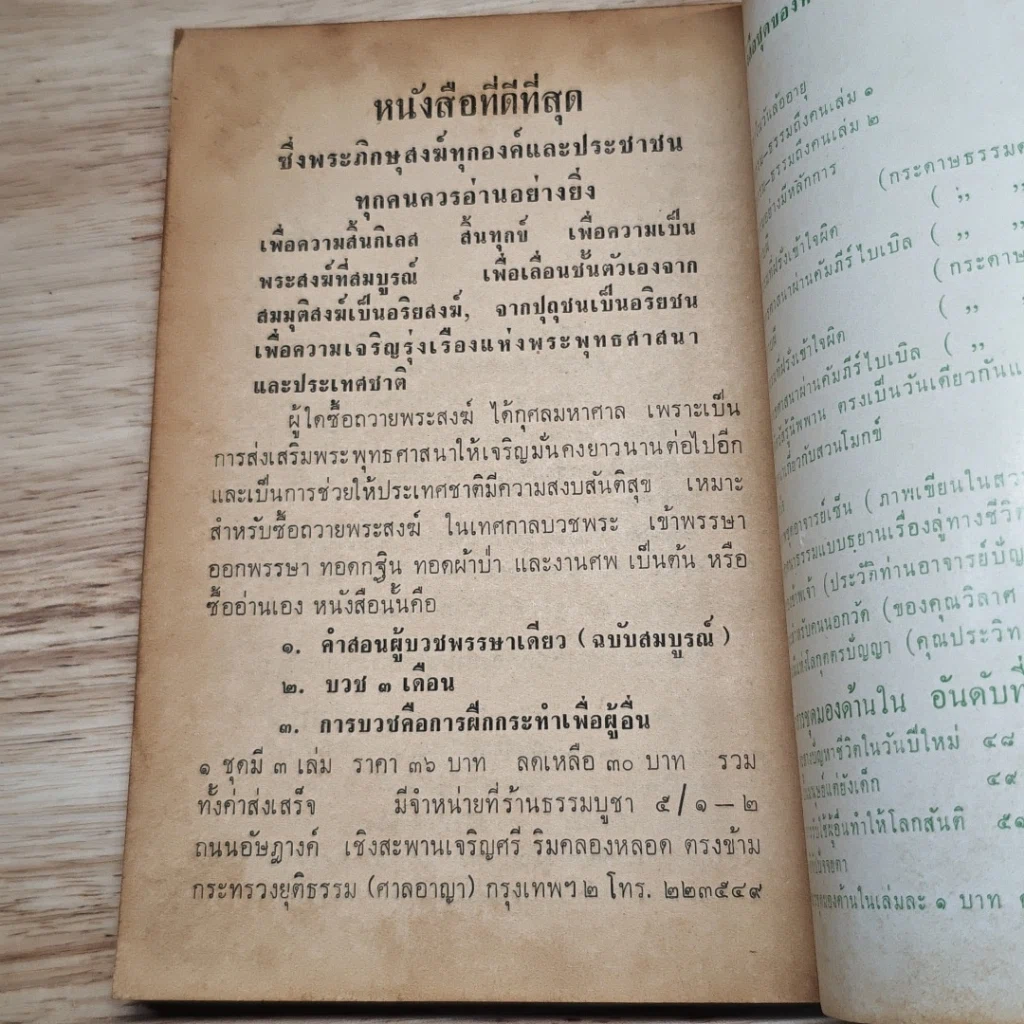 หนังสือที่ดีที่สุด
ซึ่งพระภิกษุสงฆ์ทุกองค์และประชาชน
ทุกคนควรอ่านอย่างยิ่ง
เพื่อความสิ้นกิเลส สิ้นทุกข์ เพื่อความเป็น
พระสงฆ์ที่สมบูรณ์ เพื่อเลื่อนชั้นตัวเองจาก
สมมุติสงฆ์เป็นอริยสงฆ์, จากปุถุชนเป็นอริยชน
เพื่อความเจริญรุ่งเรืองแห่งพระพุทธศาสนา
และประเทศชาติ
ผู้ใดซื้อถวายพระสงฆ์ ได้กุศลมหาศาล เพราะเป็น
การส่งเสริมพระพุทธศาสนาให้เจริญมั่นคงยาวนานต่อไปอีก
และเป็นการช่วยให้ประเทศชาติมีความสงบสันติสุข เหมาะ
สำหรับซื้อถวายพระสงฆ์ ในเทศกาลบวชพระ เข้าพรรษา
ออกพรรษา ทอดกฐิน ทอดผ้าป่า และงานศพ เป็นต้น หรือ
ซื้ออ่านเอง หนังสือนั้นคือ
๑. คำสอนผู้บวชพรรษาเดียว (ฉบับสมบูรณ์)
๒. บวช ๓ เดือน
๓. การบวชคือการฝึกกระทำเพื่อผู้อื่น
๑ ชุดมี ๓ เล่ม ราคา ๓๖ บาท ลดเหลือ ๓๐ บาท รวม
ทั้งค่าส่งเสร็จ มีจำหน่ายที่ร้านธรรมบูชา ๕/๑–๒
ถนนอัษฎางค์ เชิงสะพานเจริญศรี ริมคลองหลอด ตรงข้าม
กระทรวงยุติธรรม (ศาลอาญา) กรุงเทพฯ ๒ โทร. ๒๒๓๕๔๙
ธรรมถึงคนเล่ม ๑
ธรรมถึงคนเล่ม ๒
อย่างมีหลักการ (กระดาษธรรมด
( ,, ,,
ที่ฝรั่งเข้าใจผิด
ศาสนาผ่านคัมภีร์ไบเบิล ( ,, ,,
(กระดาษ
( ,,
ที่ฝรั่งเข้าใจผิด
ศาสนาผ่านคัมภีร์ไบเบิล ( ,,
ตรัสรู้นิพพาน ตรงเป็นวันเดียวกันแ
เกี่ยวกับสวนโมกข์
อาจารย์เซ็น (ภาพเขียนในสว
ธรรมแบบธยานเรื่องสู่ทางชีวิต
(ประวัติท่านอาจารย์ปัญ
สำหรับคนนอกวัด (ของคุณวิลาศ
โลกุตตรปัญญา (คุณประวิท
ชุดมองด้านใน อันดับที่
ปัญหาชีวิตในวันปีใหม่ ๔๘
มนุษย์แต่ยังเด็ก ๔๙
ผู้อื่นทำให้โลกสันติ ๕๑
มองด้านในเล่มละ ๑ บาท